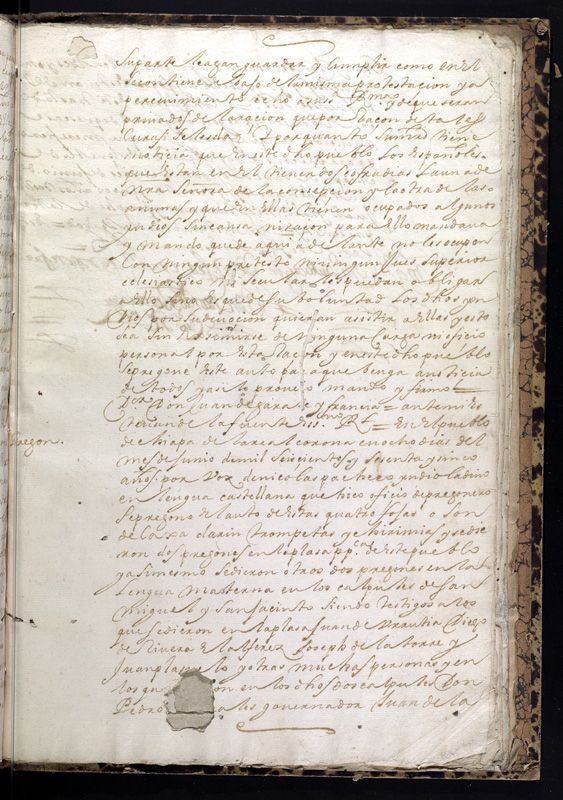 Su parte lo agan guardar y Cumplir como en el
Se contiene deBaso de la misma protestacion y a
percevimiento de no
privados de la racion que por Raçon de tal Jues
por quanto Su mrd tiene
noticia que en este dho pueblo los españoles
que estan en el tienen dos cofradias la una de
nra Señora de la consepcion y la otra de las
animas y que en ellas tienen ocupados algunos
yndios sin causa ni raçon para ello mandava
y mando que de aqui adelante no les ocupen
Con ningun pretesto ni ningun Jues Superior
eclesiastico ni Secular les puedan obligar
a ello sino es que de su boluntad los dhos yn
dios por su devocion quieran asistir a ellas y esto
sea sin Redimirse de ninguna carga ni oficio
personal por esta Raçon y en este dho pueblo
se pregone este auto para que benga a noticia
de todos y asi lo proveyo mando y firmo
Don Juan de garate y francia = ante mi
de la fuente ess. Rl = En el pueblo
de chiapa de la real corona en ocho dias del
mes de Junio de mil Seiscientos y sesenta y sinco
años por Voz de nicolas pacheco yndio ladino
en lengua castellana que hiço oficio de pregonero
Se pregono el auto de estas quatro fojas a son
de caxa clarin trompetas y chirimias y se die
ron dos pregones en la plasa ppca. de este pueblo
y asimesmo se dieron otros dos pregones en la
Lengua materna en los calpules de San
miguel y San Jacinto siendo testigos a los
que se dieron en la plasa Juan de Urrutia Diego
de Rivera el alferez Joseph de la torre y
Juan y otras muchas personas y en
los que on en los dhos dos calpules Don
Pedro governador Juan de la
pregon.